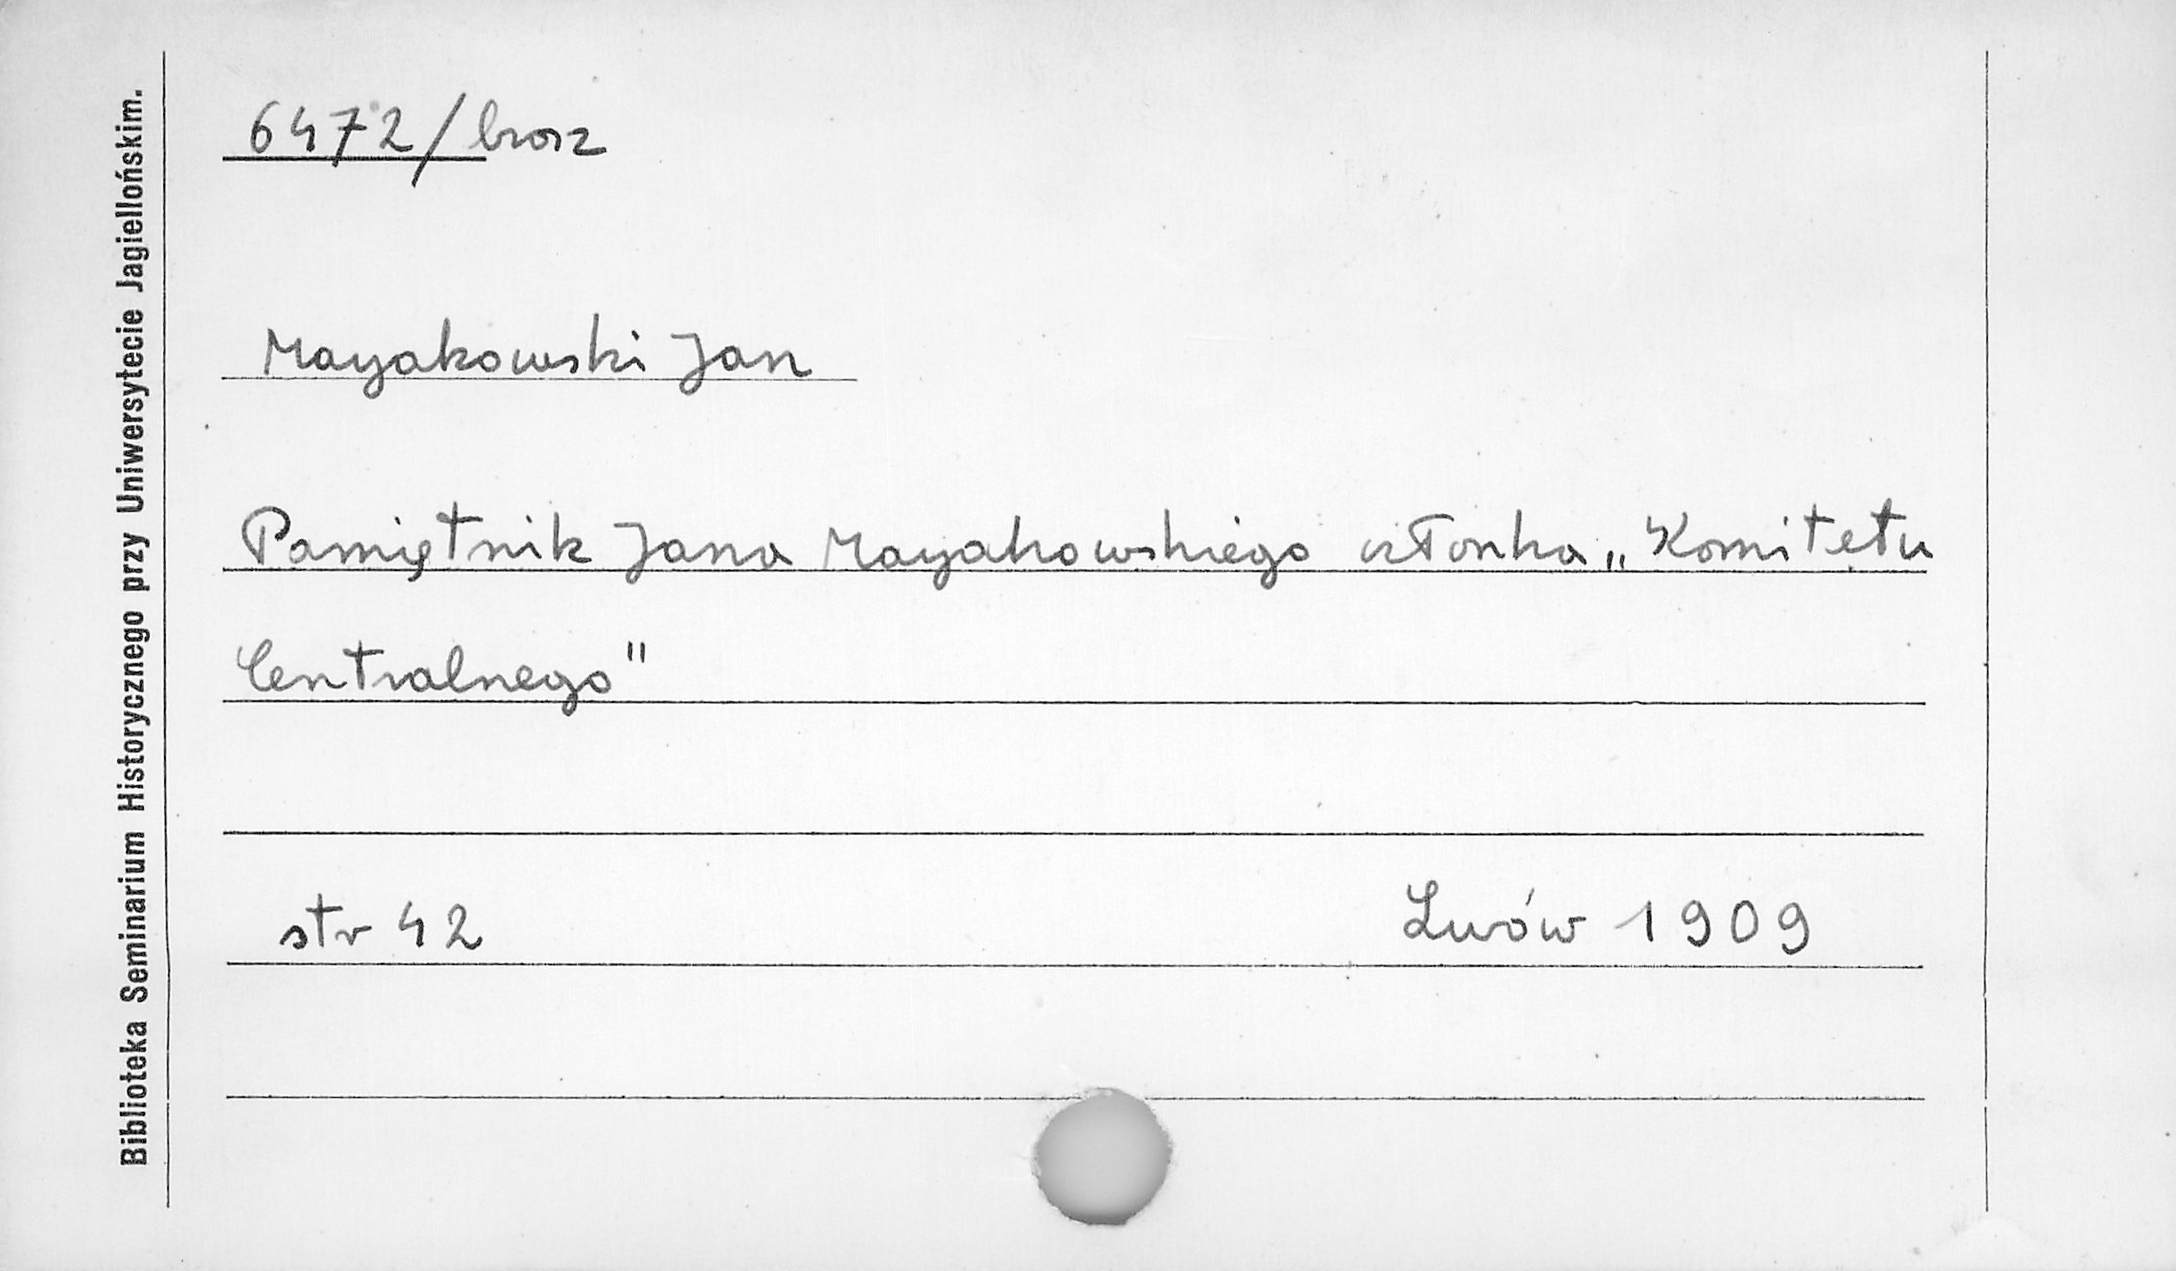 Biblioteka Seminarium Historycznego przy Uniwersytecie Jagiellońskim.
6472/brosz
Mayakowski Jan
Pamiętnik Jana Mayakowskiego członka „Komitetu
Centralnego"
str 42 Lwów 1909